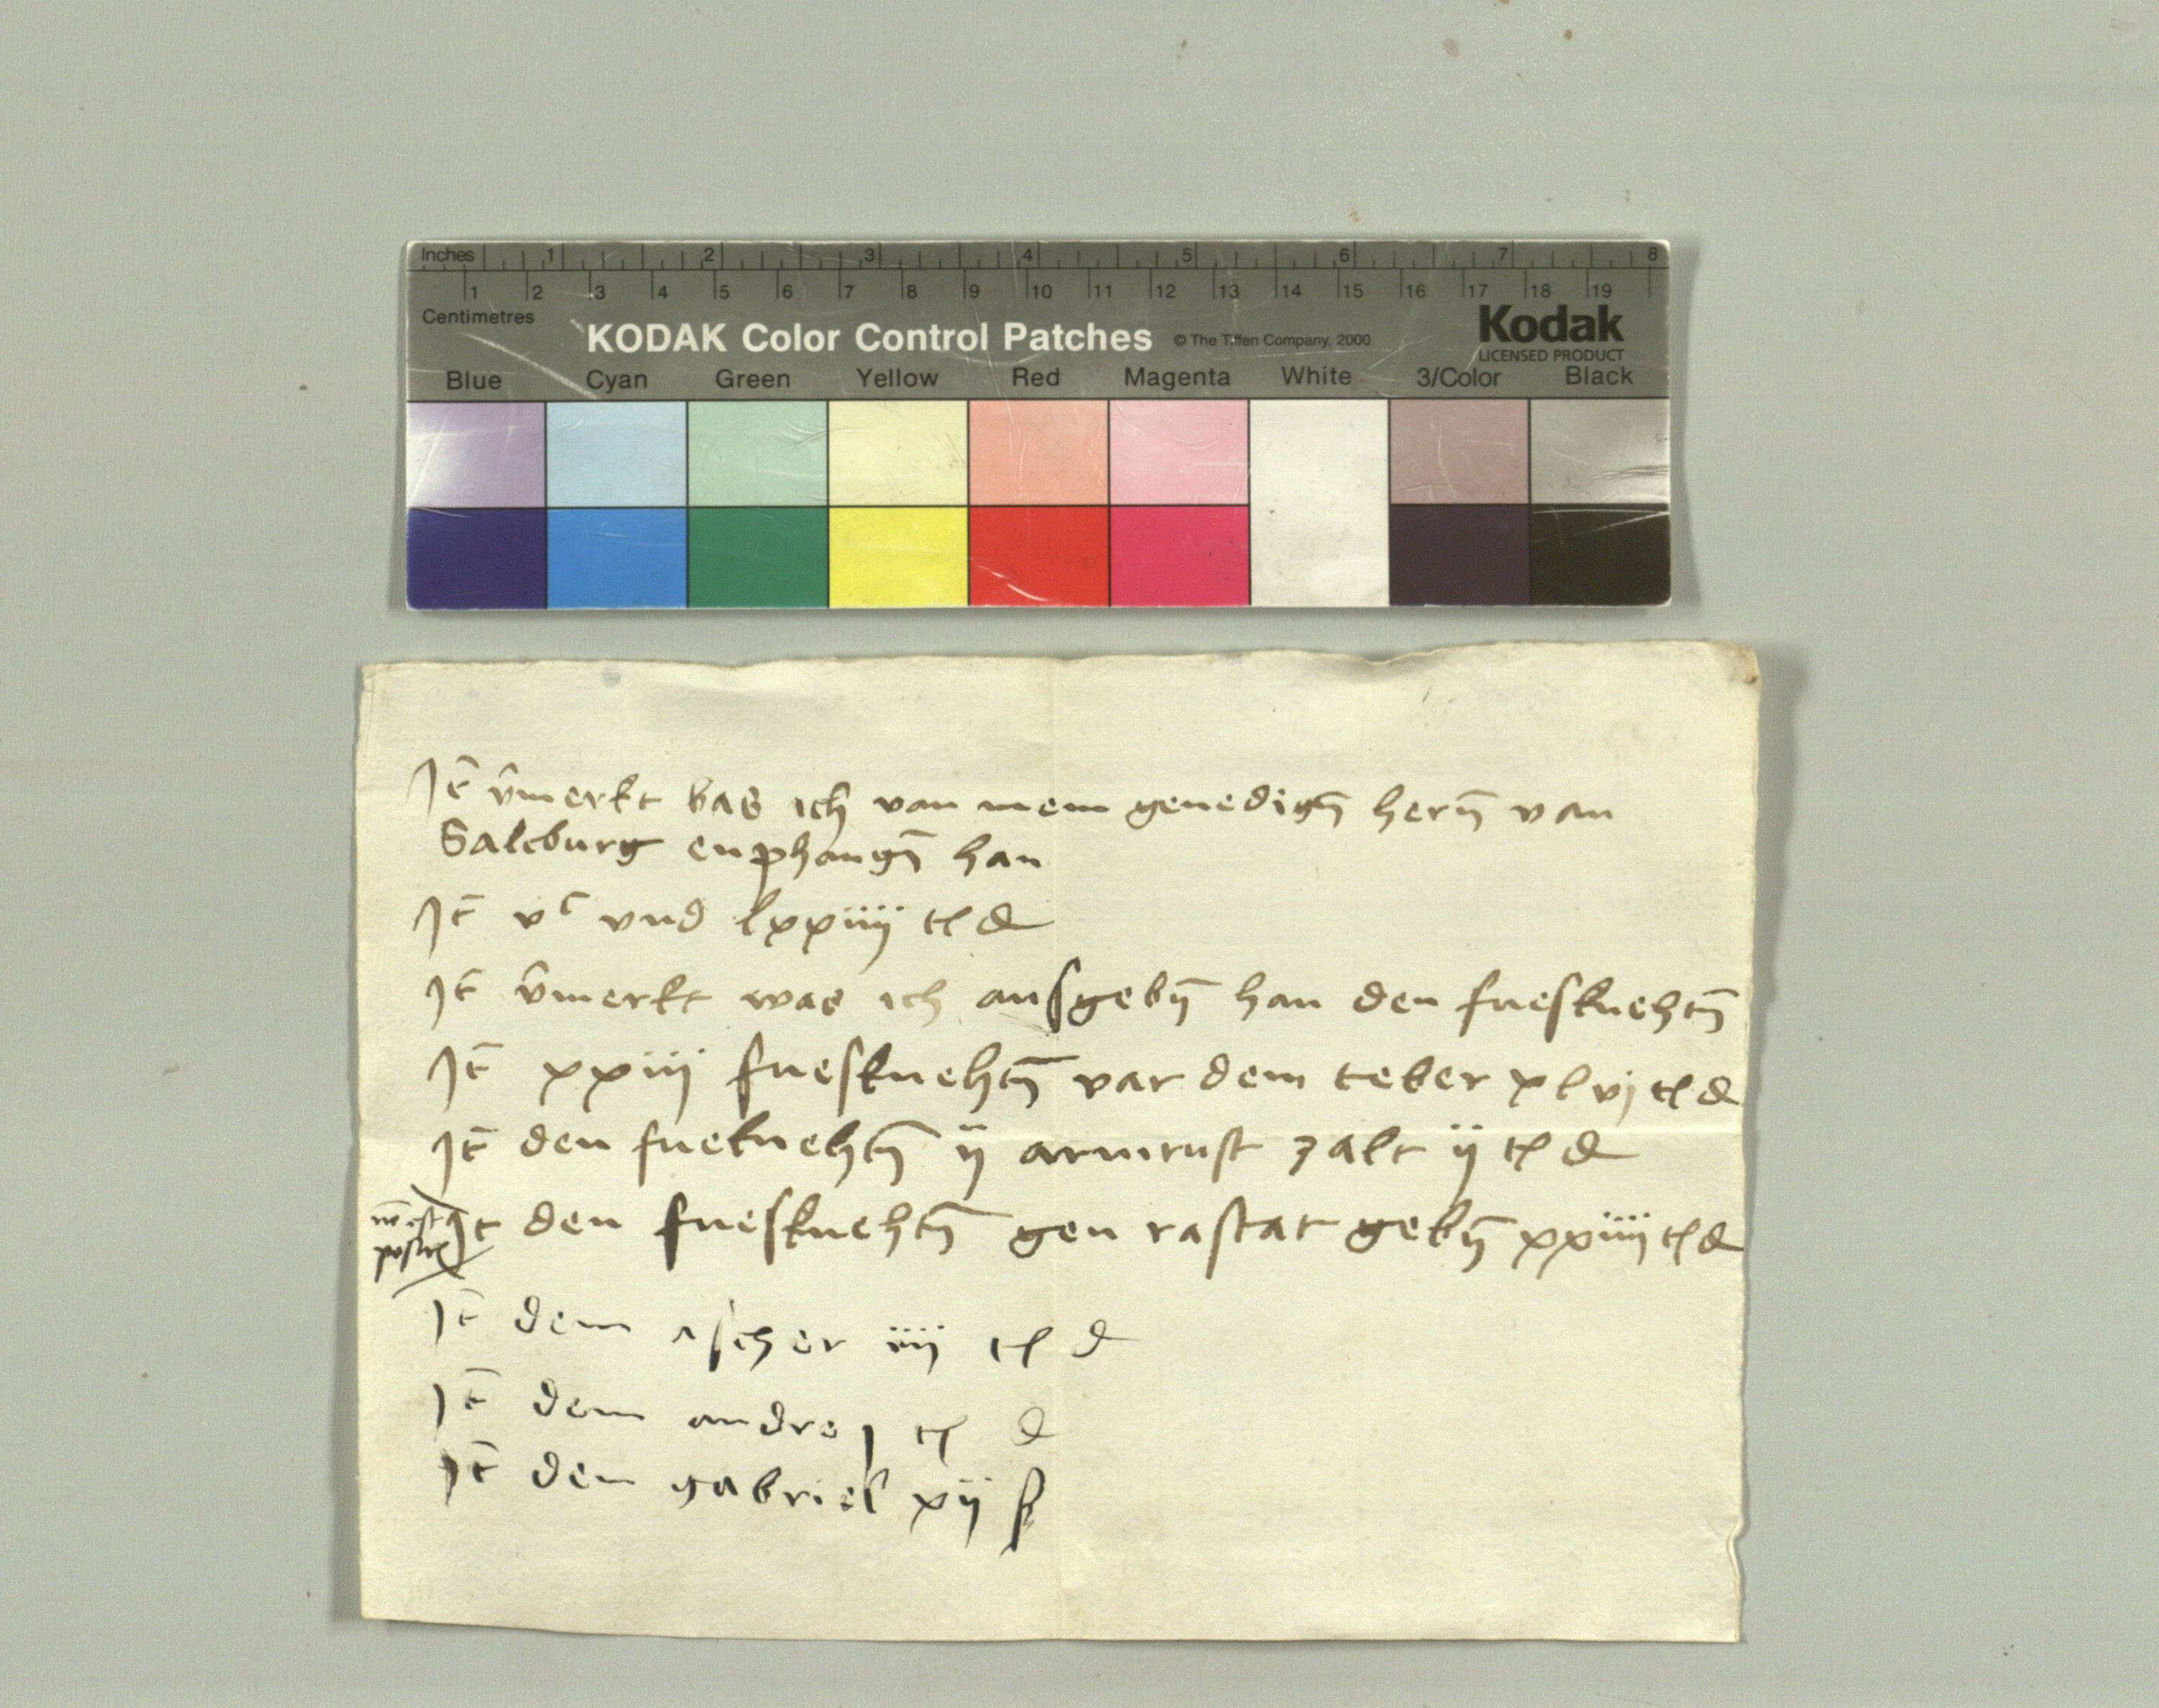 Inches 1 2 3 4 5 6 7 8
1 2 3 4 5 6 7 8 9 10 11 12 13 14 15 16 17 18 19
Centimetres
KODAK Color Control Patches © The Tiffen Company, 2000 Kodak
LICENSED PRODUCT
Blue Cyan Green Yellow Red Magenta White 3/Color Black
It̄ v̄merkt bas ich van mem genedign̄ hern̄ van
Salcburg enphangn̄ han
It̄ vᶜ vnd lxxiiij tl d
It̄ v̄merkt was ich ausgebn̄ han den fuesknehtn̄
It̄ xxiij fuesknehtn̄ var dem teber xlvj tl d
It̄ den fueknehtn̄ ij armrust zalt ij tl d
It̄ den fuesknehtn̄ gen rastat gebn̄ xxiiij tl d
It̄ dem iiij tl d
It̄ dem andre j tl d
It̄ dem gabriel xij ß